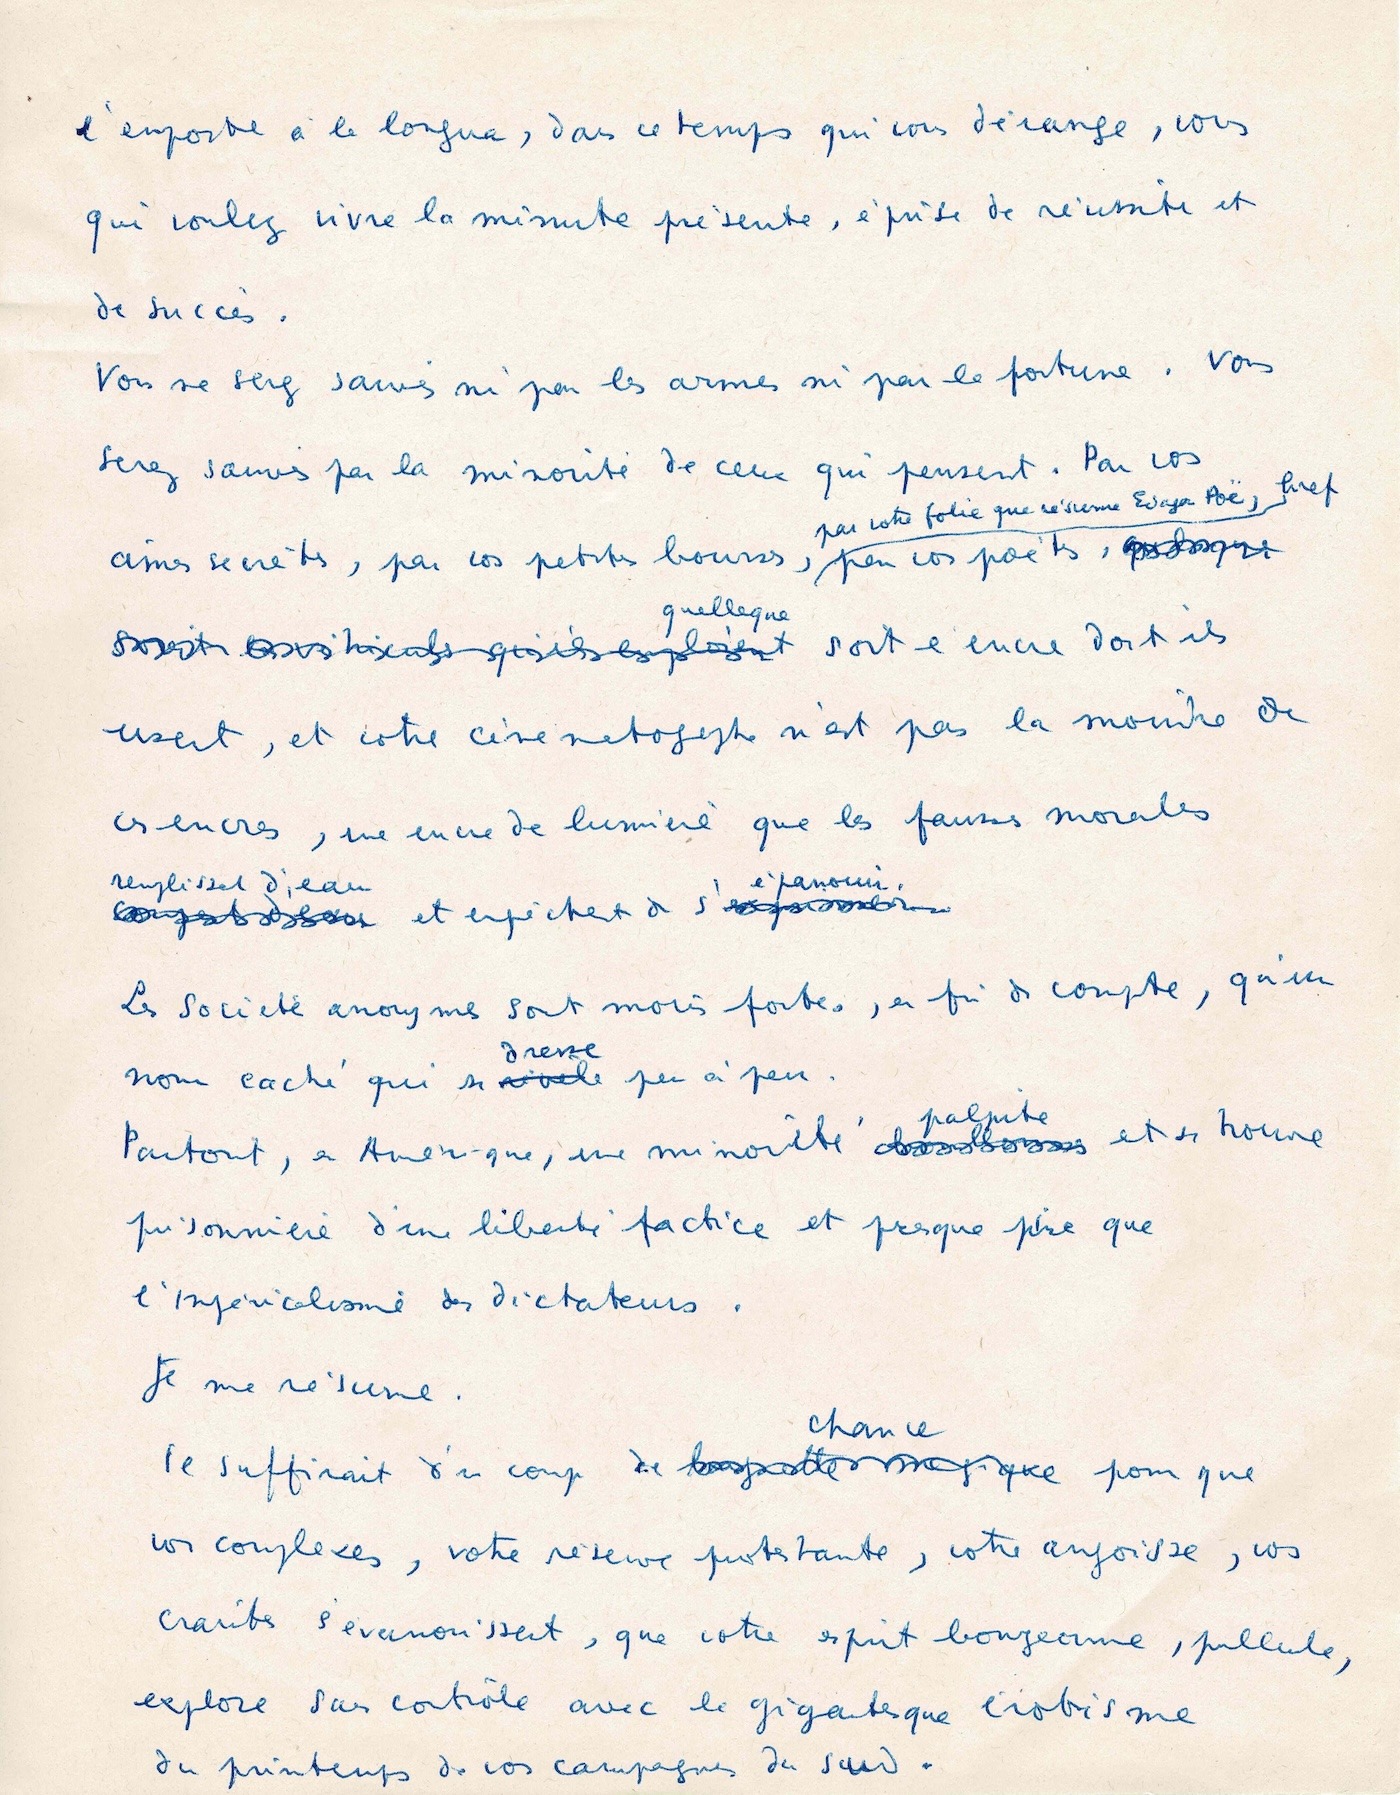 l'emporte à la longue, dans ce temps qui vous dérange, vous
qui voulez vivre la minute présente, éprise de réussite et
de succès.
Vous ne serez sauvés ni par les armes ni par la fortune. Vous
serez sauvés par la minorité de ceux qui pensent. Par vos
par votre folie que résume Edgar Poë, bref
âmes secrètes, par vos petites bourses, par vos poètes,
quelleque
sorte d'encre dont ils
usent, et votre cinématographe n'est pas la moindre de
ces encres, une encre de lumière que les fausses morales
remplissent d'eau épanouir.
et empêchent de s'
Les Société anonymes sont moins fortes, en fin de compte, qu'un
dresse
nom caché qui se révèle peu à peu.
palpite
Partout, en Amérique, une minorité et se trouve
prisonnière d'une liberté factice et presque pire que
l'impérialisme des dictateurs.
Je me résume.
chance
Il suffirait d'un coup de baguette magique pour que
vos complexes, votre réserve protestante, votre angoisse, vos
craintes s'évanouissent, que votre esprit bourgeonne, pullule,
explore sans contrôle avec le gigantesque érotisme
du printemps de vos campagnes du sud.